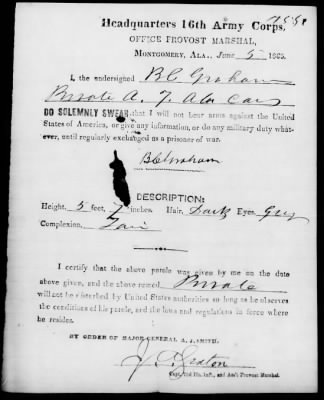 Headquarters 16th Army Corps,
OFFICE PROVOST MARSHAL,
MONTGOMERY, ALA., June 5 1865.
I, the undersigned B C Graham
Private A. 7 Ala Cav
DO SOLEMNLY SWEAR that I will not bear arms against the United
States of America, or give any information, or do any military duty what-
ever, until regularly exchanged as a prisoner of war.
B C Graham
DESCRIPTION:
Height, 5 feet, 7 inches. Hair, Dark Eyes, Grey
Complexion, Fair
I certify that the above parole was given by me on the date
above given, and the above named Private
will not be disturbed by United States authorities so long as he observes
the conditions of his parole, and the laws and regulations in force where
he resides.
BY ORDER OF MAJOR-GENERAL A. J. SMITH.
Capt. 2nd Inft., and Ass't Provost Marshal.